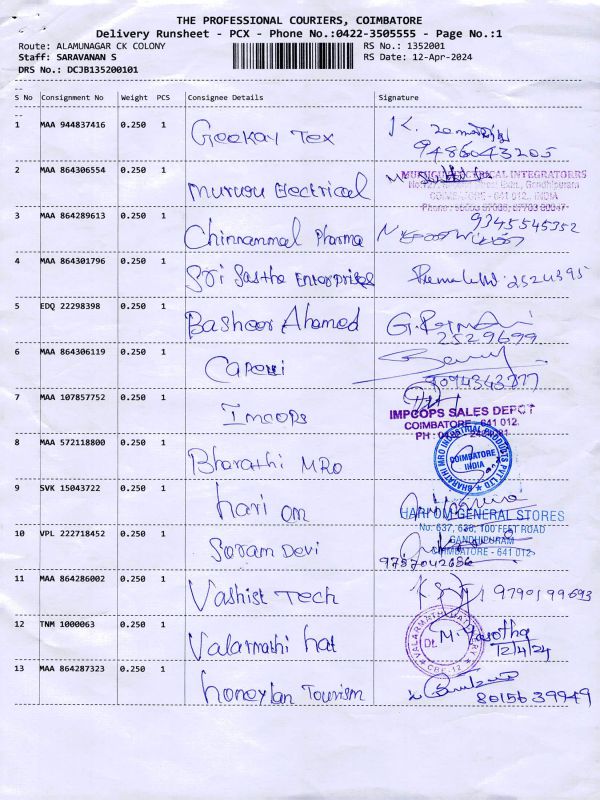 THE PROFESSIONAL COURIERS, COIMBATORE
Delivery Runsheet - PCX - Phone No.:0422-3505555 - Page No.:1
Route: ALAMUNAGAR CK COLONY
RS No.: 1352001
Staff: SARAVANAN S
RS Date: 12-Apr-2024
DRS No.: DCJB135200101
S No Consignment No Weight PCS Consignee Details Signature
1 MAA 944837416 0.250 1 Geekay Tex
9486043205
2 MAA 864306554 0.250 1 Muruou Electrical
ELECTRICAL INTEGRATORRS
Gandhipuram
COIMBATORE - 641 012. INDIA
3 MAA 864289613 0.250 1 Chinnammal Pharma
9345545352
4 MAA 864301796 0.250 1 Sri Sastha Enterprises 2524395
5 EDQ 22298398 0.250 1 Basheer Ahamed
2529699
6 MAA 864306119 0.250 1
9094343777
7 MAA 107857752 0.250 1 Imcops
IMPCOPS SALES DEPOT
COIMBATORE - 641 012.
8 MAA 572118800 0.250 1 Bharathi MRO
BHARATHI MRO INDUSTRIAL PRODUCTS PVT LTD
COIMBATORE
INDIA
9 SVK 15043722 0.250 1 hari om
HARI OM GENERAL STORES
No. 637, 638, 100 FEET ROAD
GANDHIPURAM
COIMBATORE - 641 012
10 VPL 222718452 0.250 1 Soram Devi
11 MAA 864286002 0.250 1 Vashist Tech
9790199693
12 TNM 1000063 0.250 1 Valarmathi hat
M. Yasotha
12/4/24
CBE-12
13 MAA 864287323 0.250 1 honeylan Tourism
8015639949